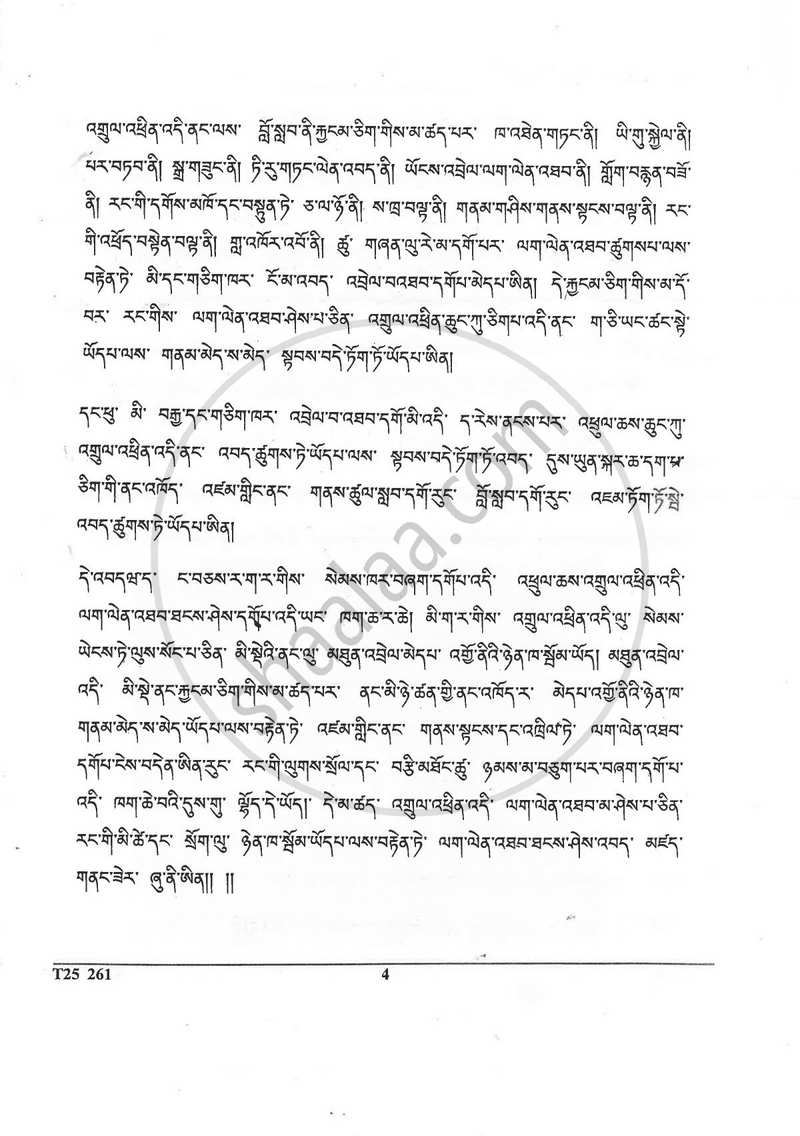 འགྲུལ་འཕྲིན་འདི་ནང་ལས་ བློ་སླབ་ནི་རྐྱངམ་ཅིག་གིས་མ་ཚད་པར་ ཁ་འཐེན་གཏང་ནི། ཡི་གུ་སྐྱེལ་ནི།
པར་བཏབ་ནི། སྒྲ་གཟུང་ནི། ཏི་རུ་གཏང་ལེན་འབད་ནི། ཡོངས་འབྲེལ་ལག་ལེན་འཐབ་ནི། གློག་བརྙན་བཟོ་
ནི། རང་གི་དགོས་མཁོ་དང་བསྟུན་ཏེ་ ཅ་ལ་ཉོ་ནི། ས་ཁྲ་བལྟ་ནི། གནམ་གཤིས་གནས་སྟངས་བལྟ་ནི། རང་
གི་འཕྲོད་བསྟེན་བལྟ་ནི། གླ་འཁོར་འབོ་ནི། ཚུ་ གཞན་ལུ་རེ་མ་དགོ་པར་ ལག་ལེན་འཐབ་ཚུགསཔ་ལས་
བརྟེན་ཏེ་ མི་དང་གཅིག་ཁར་ ངོ་མ་འབད་ འབྲེལ་བ་འཐབ་དགོཔ་མེདཔ་ཨིན། དེ་རྐྱངམ་ཅིག་གིས་མ་དོ་
བར་ རང་གིས་ ལག་ལེན་འཐབ་ཤེས་པ་ཅིན་ འགྲུལ་འཕྲིན་ཆུང་ཀུ་ཅིགཔ་འདི་ནང་ ག་ཅི་ཡང་ཚང་སྟེ་
ཡོདཔ་ལས་ གནམ་མེད་ས་མེད་ སྟབས་བདེ་ཏོག་ཏོ་ཡོདཔ་ཨིན།
དང་ཕུ་ མི་ བརྒྱ་དང་གཅིག་ཁར་ འབྲེལ་བ་འཐབ་དགོ་མི་འདི་ ད་རེས་ནངས་པར་ འཕྲུལ་ཆས་ཆུང་ཀུ་
འགྲུལ་འཕྲིན་འདི་ནང་ འབད་ཚུགས་ཏེ་ཡོདཔ་ལས་ སྟབས་བདེ་ཏོག་ཏོ་འབད་ དུས་ཡུན་སྐར་ཆ་དག་པ་
ཅིག་གི་ནང་འཁོད་ འཛམ་གླིང་ནང་ གནས་ཚུལ་སླབ་དགོ་རུང་ བློ་སླབ་དགོ་རུང་ འཇམ་ཏོག་ཏོ་སྦེ་
འབད་ཚུགས་ཏེ་ཡོདཔ་ཨིན།
དེ་འབདཝ་ད་ ང་བཅས་ར་ག་ར་གིས་ སེམས་ཁར་བཞག་དགོཔ་འདི་ འཕྲུལ་ཆས་འགྲུལ་འཕྲིན་འདི་
ལག་ལེན་འཐབ་ཐངས་ཤེས་དགོཔ་འདི་ཡང་ ཁག་ཆ་ར་ཆེ། མི་ག་ར་གིས་ འགྲུལ་འཕྲིན་འདི་ལུ་ སེམས་
ཡེངས་ཏེ་ལུས་སོང་པ་ཅིན་ མི་སྡེའི་ནང་ལུ་ མཐུན་འབྲེལ་མེདཔ་ འགྱོ་ནིའི་ཉེན་ཁ་སྦོམ་ཡོད། མཐུན་འབྲེལ་
འདི་ མི་སྡེ་ནང་རྐྱངམ་ཅིག་གིས་མ་ཚད་པར་ ནང་མི་ཉེ་ཚན་གྱི་ནང་འཁོད་ར་ མེདཔ་འགྱོ་ནིའི་ཉེན་ཁ་
གནམ་མེད་ས་མེད་ཡོདཔ་ལས་བརྟེན་ཏེ་ འཛམ་གླིང་ནང་ གནས་སྟངས་དང་འཁྲིལ་ཏེ་ ལག་ལེན་འཐབ་
དགོཔ་ངེས་བདེན་ཨིན་རུང་ རང་གི་ལུགས་སྲོལ་དང་ བརྩི་མཐོང་ཚུ་ ཉམས་མ་བཅུག་པར་བཞག་དགོ་པ་
འདི་ ཁག་ཆེ་བའི་དུས་གུ་ ལྷོད་དེ་ཡོད། དེ་མ་ཚད་ འགྲུལ་འཕྲིན་འདི་ ལག་ལེན་འཐབ་མ་ཤེས་པ་ཅིན་
རང་གི་མི་ཚེ་དང་ སྲོག་ལུ་ ཉེན་ཁ་སྦོམ་ཡོདཔ་ལས་བརྟེན་ཏེ་ ལག་ལེན་འཐབ་ཐངས་ཤེས་འབད་ མཛད་
གནང་ཟེར་ ཞུ་ནི་ཨིན།། །།
shaalaa.com
T25 261 4